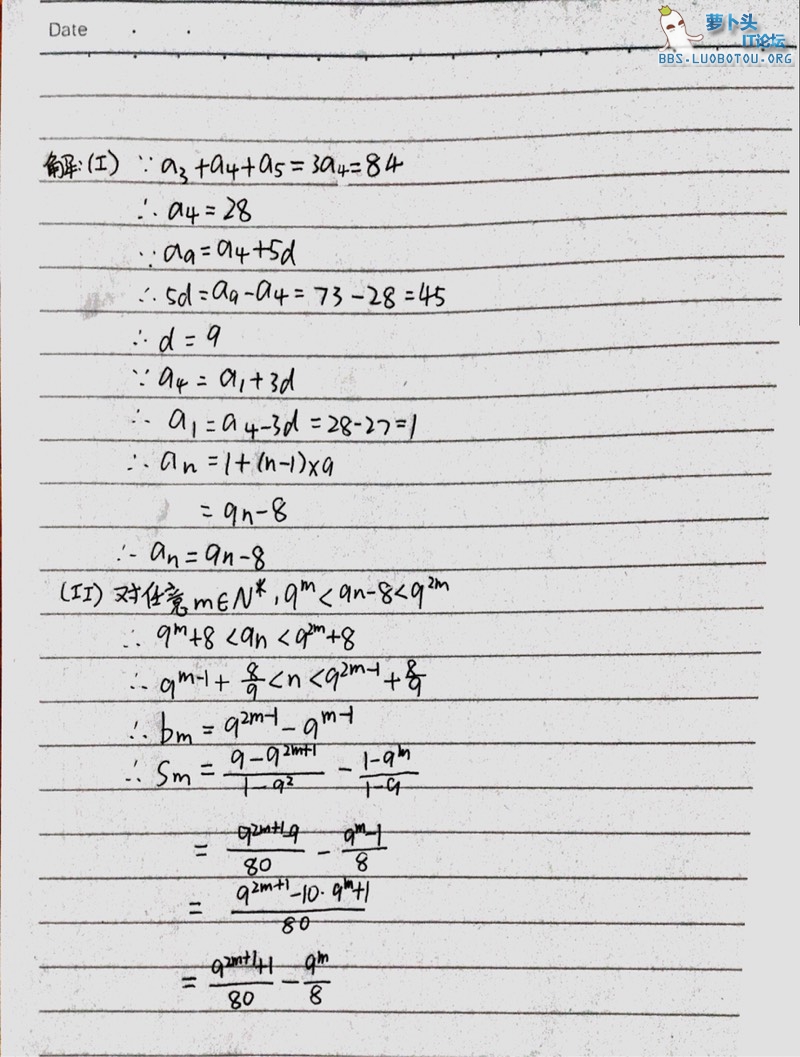 Date
萝卜头
IT论坛
BBS.LUOBOTOU.ORG
解:(I) ∵a₃+a₄+a₅=3a₄=84
∴a₄=28
∵a₉=a₄+5d
∴5d=a₉-a₄=73-28=45
∴d=9
∵a₄=a₁+3d
∴a₁=a₄-3d=28-27=1
∴aₙ=1+(n-1)×9
=9n-8
∴aₙ=9n-8
(II) 对任意m∈N*,9^m<9n-8<9^{2m}
∴9^m+8<9n<9^{2m}+8
∴9^{m-1}+\frac{8}{9}<n<9^{2m-1}+\frac{8}{9}
∴b_m=9^{2m-1}-9^{m-1}
∴S_m=\frac{9-9^{2m+1}}{1-9^2}-\frac{1-9^m}{1-9}
=\frac{9^{2m+1}-9}{80}-\frac{9^m-1}{8}
=\frac{9^{2m+1}-10·9^m+1}{80}
=\frac{9^{2m+1}+1}{80}-\frac{9^m}{8}